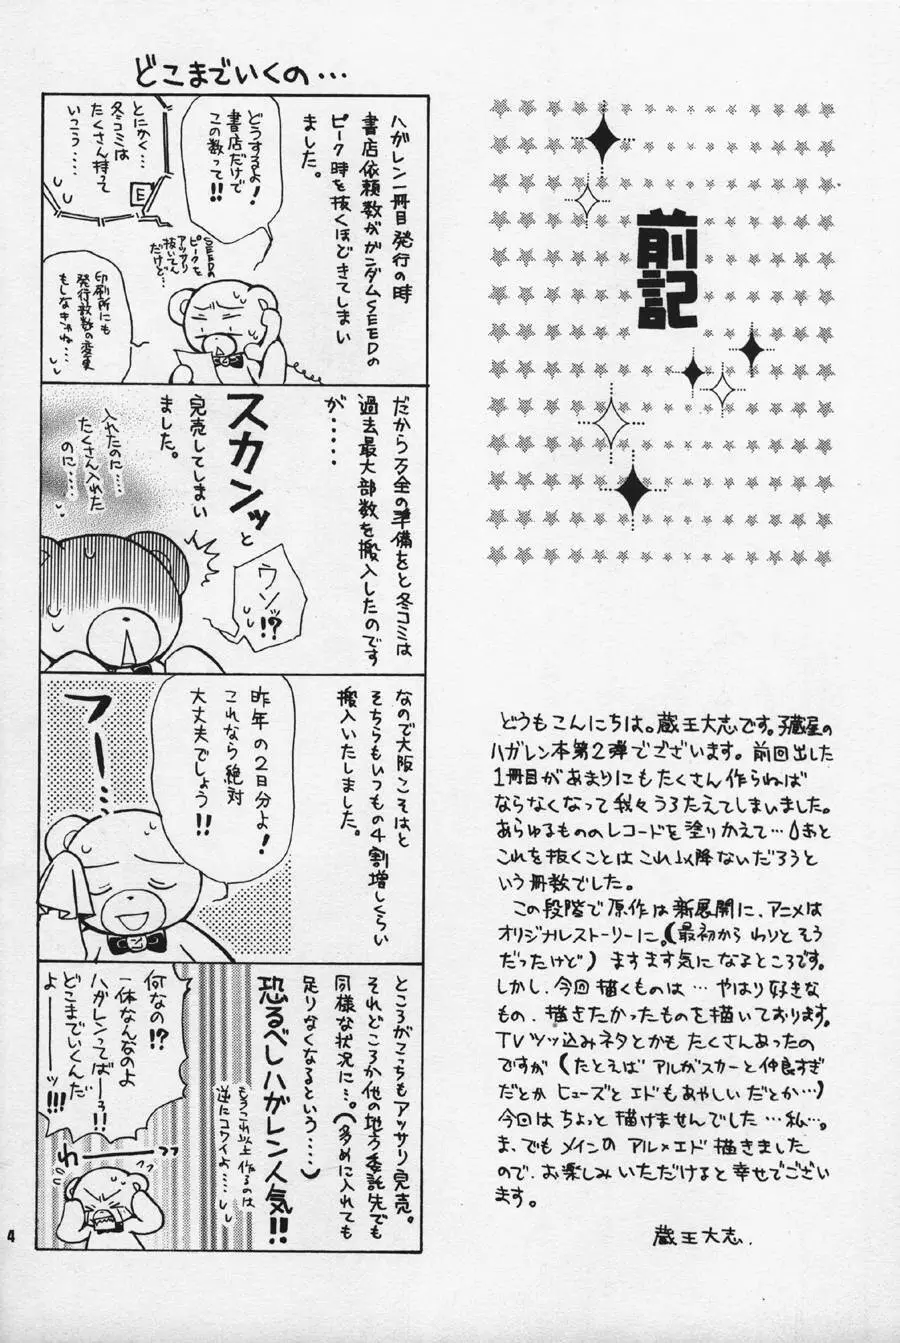 前記
どうもこんにちは。蔵王大志です。子蔵屋の
ハガレン本第2弾でございます。前回出した
1冊目があまりにもたくさん作らねば
ならなくなって我々うろたえてしまいました。
あらゆるもののレコードを塗りかえて…あと
これを抜くことはこれ以降ないだろうと
いう冊数でした。
この段階で原作は新展開に、アニメは
オリジナルストーリーに。(最初からわりとそう
だったけど)ますます気になるところです。
しかし、今回描くものは…やはり好きな
もの、描きたかったものを描いております。
TVツッ込みネタとかもたくさんあったの
ですが(たとえばアルがスカーと仲良すぎ
だとかヒューズとエドもあやしいだとか…)
今回はちょっと描けませんでした…私…。
ま、でもメインのアル×エド描きました
ので、お楽しみいただけると幸せでござい
ます。
蔵王大志.
どこまでいくの…
ハガレン一冊目発行の時
書店依頼数がガンダムSEEDの
ピーク時を抜くほどきてしまい
ました。
どうするよ!
書店だけで
この数って!!
とにかく…
冬コミは
たくさん持って
いこう…
E
SEEDの
ピークを
アッサリ
抜いてん
だけど…
印刷所にも
発行部数の変更
もしなきゃね…
だから万全の準備をと冬コミは
過去最大部数を搬入したのです
が……
スカンッと
完売してしまい
ました。
ウソッ!?
入れたのに…
たくさん入れた
のに…
なので大阪こそはと
そちらもいつもの4割増しくらい
搬入いたしました。
昨年の2日分よ!
これなら絶対
大丈夫でしょう!!
フー…
ところがこっちもアッサリ完売。
それどころか他の地方委託先でも
同様な状況に…。(多めに入れても
足りなくなるという…)
恐るべしハガレン人気!!
もうこれ以上作るのは
逆にコワイよ…
何なの!?
一体なんなのよ
ハガレンってばーっ!!
どこまでいくんだ
よーーーッ!!!
わーーっ
4